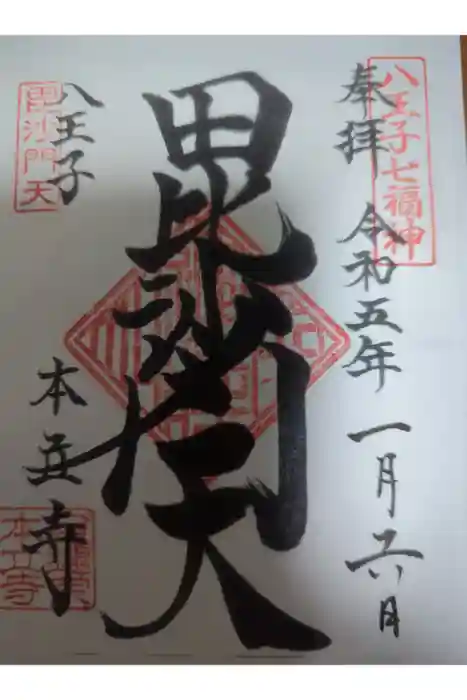 八王子七福神
奉拝 令和五年一月六日
毘沙門天
八王子
毘沙門天
本立寺
本立寺